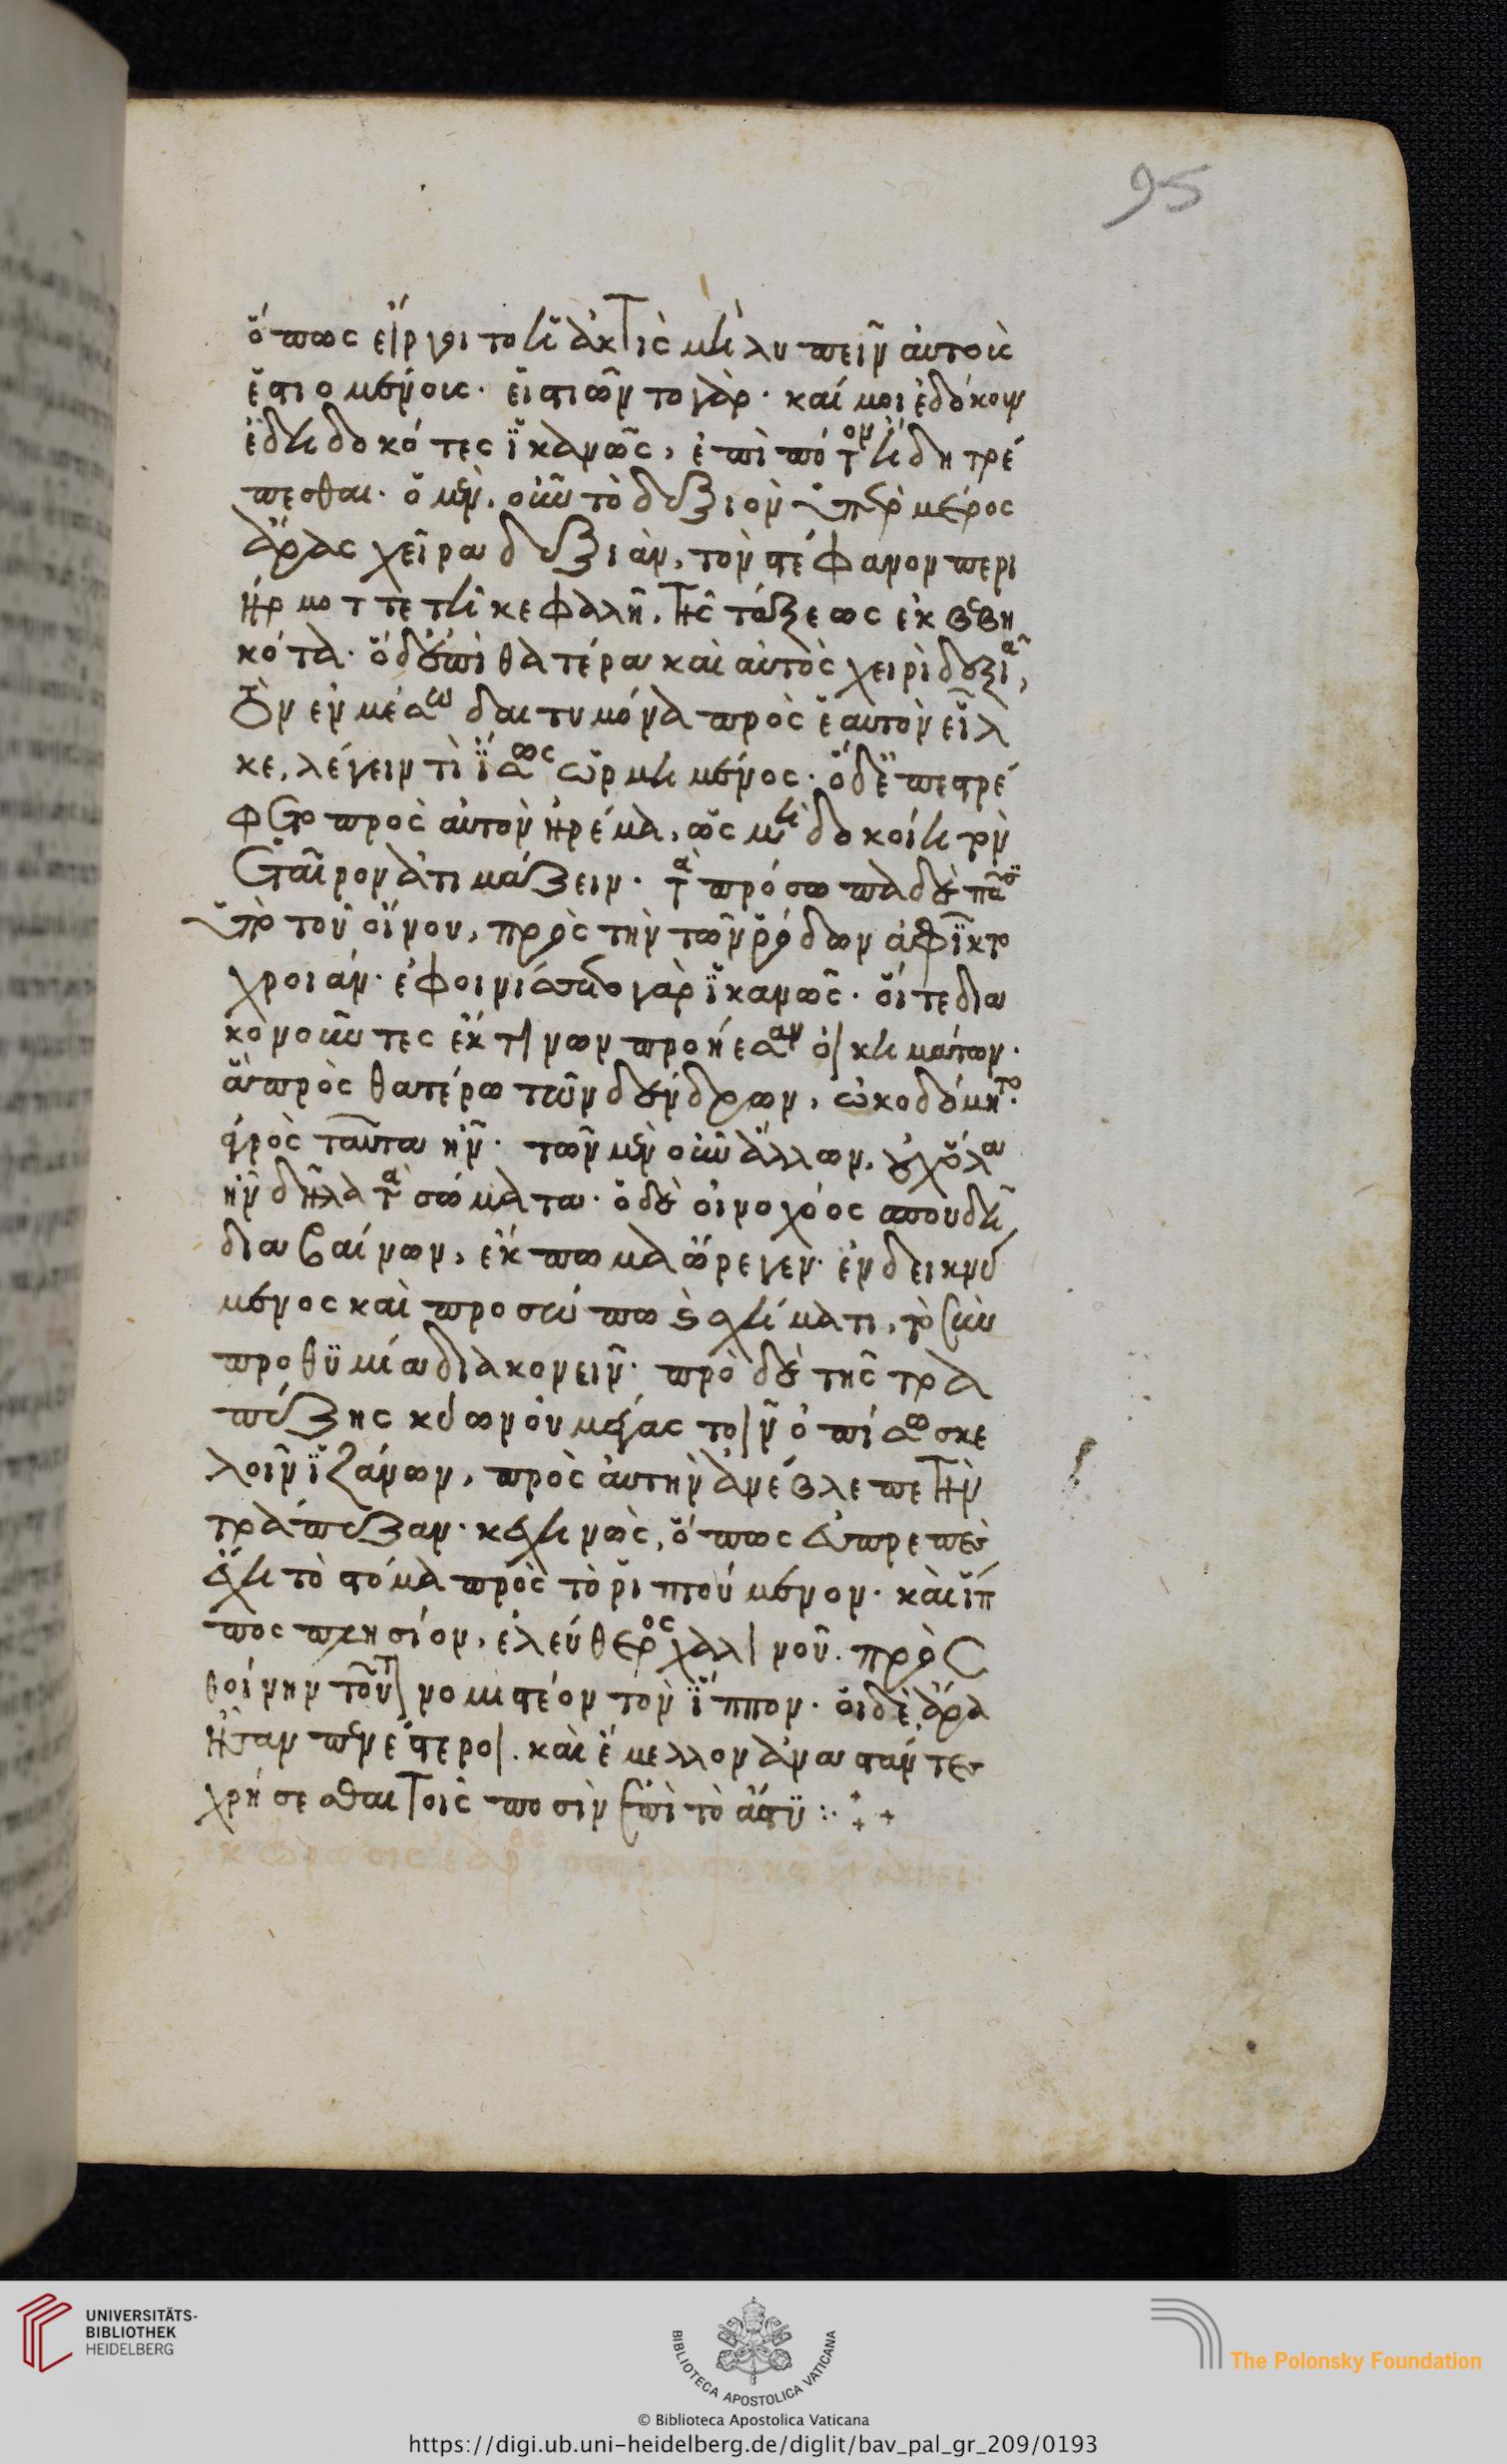 95
ὅπως εἴργοιτο ἡ ἀκτὶς μὴ λυπεῖν αὐτοὺς
ἑστιομένοις. εἱστιῶντο γὰρ. καί μοι ἐδόκουν
ἐδηδοκότες ἱκανῶς, ἐπὶ πότον ἤδη τρέ
πεσθαι. ὁ μὲν οὖν τὸ δεξιὸν ὑπὲρ μέρος
ἄρας χεῖρα δεξιὰν, τὸν στέφανον περι
ήρμοττε τῆ κεφαλῆ, τῆς τάξεως ἐκβεβη
κότα. ὁ δ' ἐπὶ θατέρα καὶ αὐτὸς χειρὶ δεξιᾶ,
τὸν ἐν μέσω δαιτυμόνα πρὸς ἑαυτὸν εἷλ
κε, λέγειν τὶ ἴσως ὡρμημένος. ὁ δὲ ἐπεστρέ
φετο πρὸς αὐτὸν ἠρέμα, ὡς μὴ δοκοίη τὸν
ἑταῖρον ἀτιμάζειν. τὰ πρόσωπα δὲ πᾶσι
ὑπὸ τοῦ οἴνου, πρὸς τὴν τῶν ῥόδων ἀφῖκτο
χροιάν. ἐφοινίσσετο γὰρ ἱκανῶς. οἵ τε δια
κονοῦντες ἔκ τινων προήεσαν οἰκημάτων.
ἃ πρὸς θατέρω τῶν δένδρων, ὠκοδόμητο.
στρὸς ταῦτα ἦν. τῶν μὲν οὖν ἄλλων, οὐχ ὅλα
ἦν δῆλα τὰ σώματα. ὁ δὲ οἰνοχόος σπουδῆ
διαβαίνων, ἔκπωμα ὤρεγεν. ἐνδεικνύ
μενος καὶ προσώπω καὶ σχήματι, τὸ σὺν
προθυμία διακονεῖν. πρὸ δὲ τῆς τρα
πέζης κύων οὐ μέγας τοῖν ὀπίσω σκε
λοῖν ἱζάνων, πρὸς αὐτὴν ἀνέβλεπε τὴν
τράπεζαν. κεχηνὼς, ὅπως εὐπρεπὲς
ἔχη τὸ στόμα πρὸς τὸ ῥιπτούμενον. καὶ ἵπ
πος πλησίον, ἐλεύθερος χαλινοῦ. πρὸς
θοίνην τοῦτι νομιστέον τὸν ἵππον. οἱ δὲ ἄρα
ἦσαν πενέστεροι. καὶ ἔμελλον ἀναστάντες
χρήσεσθαι τοῖς ποσὶν ἐπὶ τὸ ἄστυ :.
UNIVERSITÄTS-
BIBLIOTHEK
HEIDELBERG
BIBLIOTECA APOSTOLICA VATICANA
The Polonsky Foundation
© Biblioteca Apostolica Vaticana
https://digi.ub.uni-heidelberg.de/diglit/bav_pal_gr_209/0193